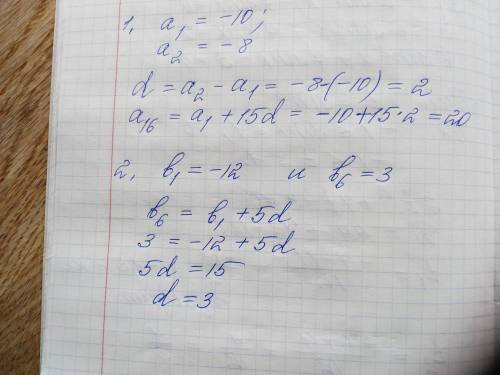 1, a₁ = -10;
a₂ = -8
d = a₂ - a₁ = -8-(-10) = 2
a₁₆ = a₁ + 15d = -10+15·2 = 20
2, b₁ = -12 и b₆ = 3
b₆ = b₁ + 5d
3 = -12 + 5d
5d = 15
d = 3